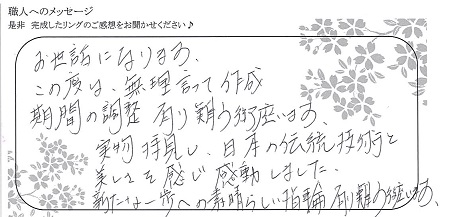 職人へのメッセージ
是非 完成したリングのご感想をお聞かせください♪
お世話になります。
この度は、無理言って作成
期間の調整 有り難う御座います。
実物拝見し、日本の伝統技術と
美しさを感じ感動しました。
新たな一歩への素晴らしい指輪有り難う御座います。